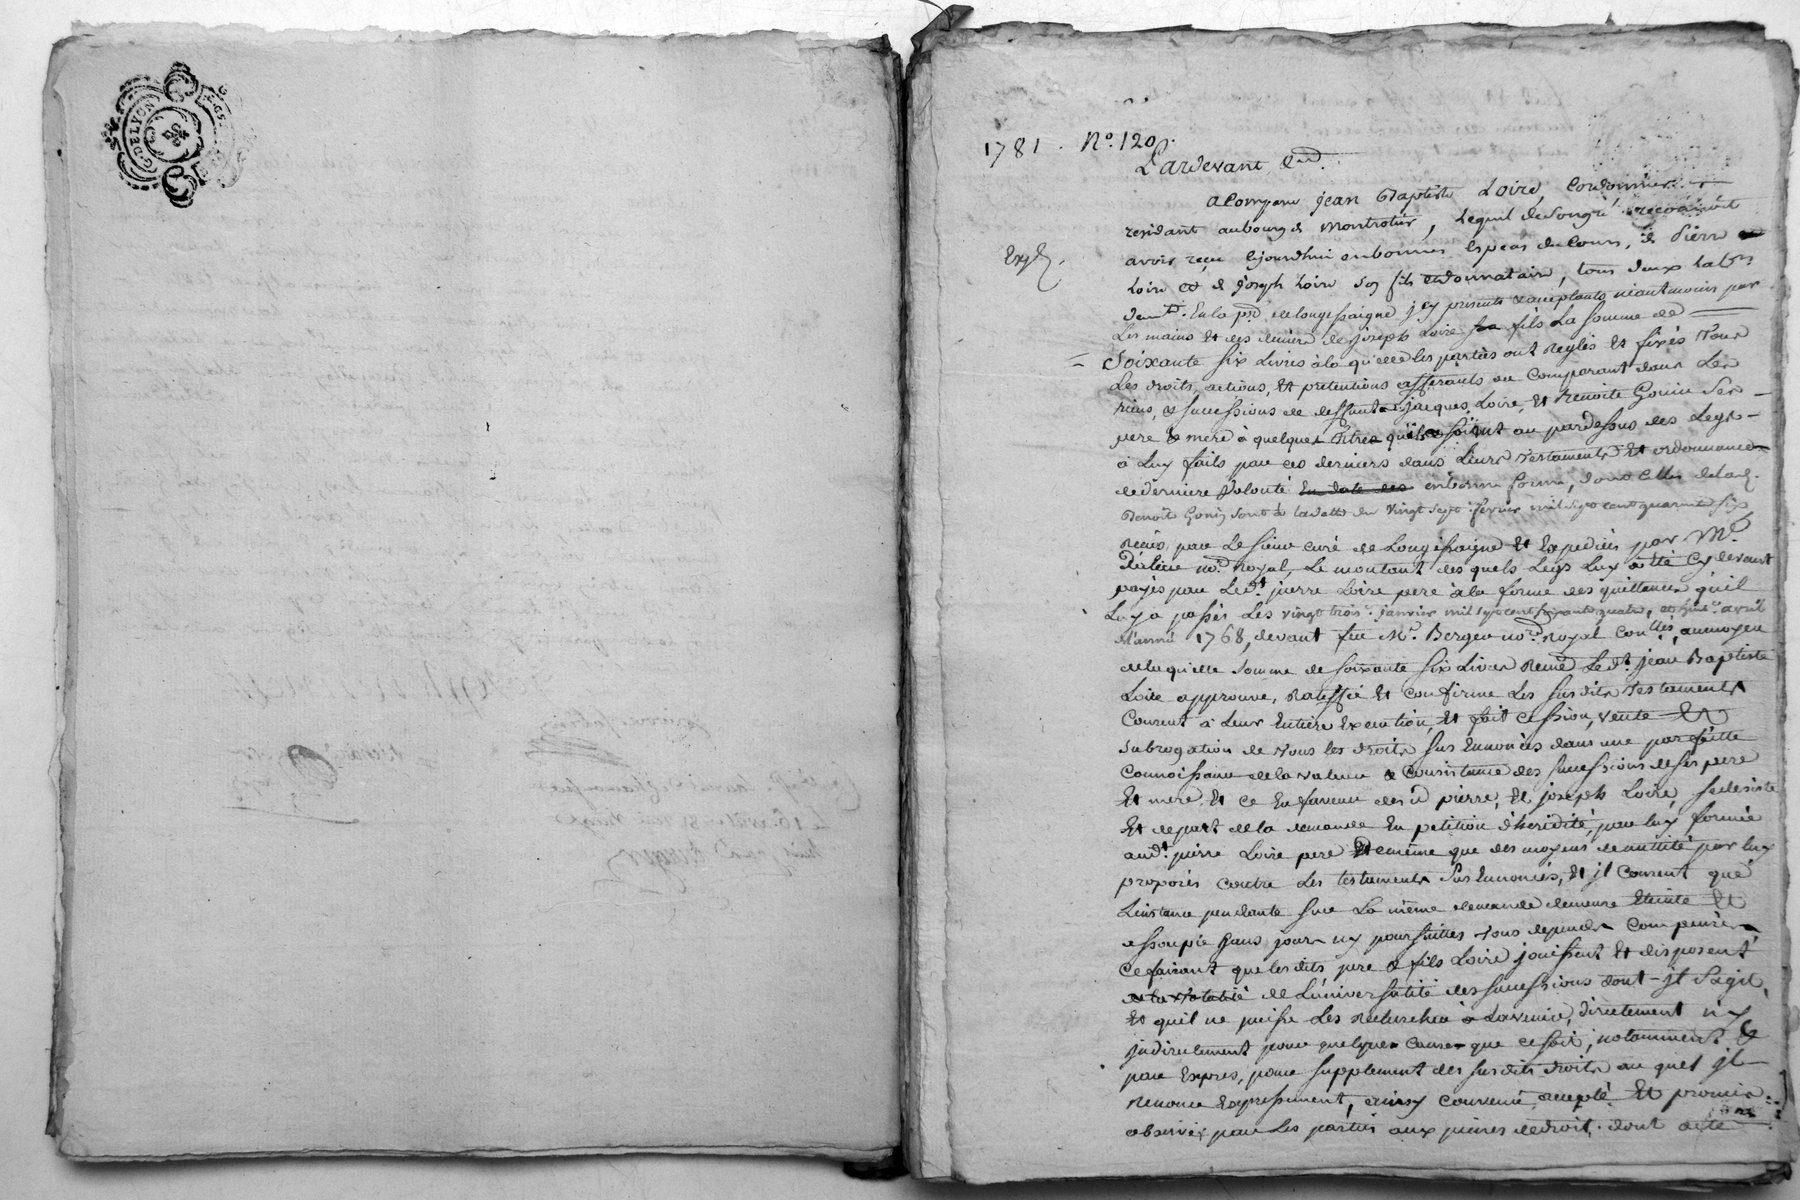 G. DE LYON
1781. N.º 120.
Pardevant &c.
a Comparu jean Baptiste Loire, Cordonnier
residant aubourg de Montrotier, Lequel de Son gré reconnoit
Exp.
avoir reçu ejourdhui enbonnes Especes de Cours, de Pierre
Loire et de Joseph Loire Son fils et donnataire, tous deux lab.rs
dem.t En la p.sse de longessaigne jcy presents & acceptants néantmoins par
Les mains Et des deniers de joseph Loire fils La Somme de
Soixante Six Livres à la qu'elle les parties ont Reglés Et fixés Tous
Les droits, actions, Et pretentions afférants au Comparant dans Les
biens, & successions de deffunts jacques Loire, Et Benoite Gonin Ses
pere & mere à quelques titres qu'ils soient au pardessus des Legs
à Luy faits par ces derniers dans Leurs testaments Et ordonnances
de derniere Volonté En date des en bonne forme, dont Celles de lad.
Benoit Gonin Sont à la datte du Vingt Sept fevrier mil Sept cent quarante Six
Reçus par Le Sieur curé de Longessaigne Et Expediés par M.e
no.re Royal, Le montant des quels Legs Luy a été Cy devant
payés par Led.t pierre Loire pere à la forme des quittances qu'il
Luy a passés Les Vingt trois janvier mil Sept cent soixante quatre, et avril
L'année 1768, devant feu M.e Berger no.re Royal au moyen
de la qu'elle Somme de Soixante Six Livres Led.t jean Baptiste
Loire approuve, Ratiffie Et Confirme Les Susdits Testaments
Consent à Leur Entiere Execution, Et fait cession, Vente Et
Subrogation de Tous les droits Sus Ennoncés dans une parfaitte
Connoissance de la Valeur & Consistance des Successions de Ses pere
Et mere, Et ce En faveur desd. pierre, Et joseph Loire, Se desiste
Et depart de la demande En petition d'heridité, par luy formée
aud.t pierre Loire pere Et même que des moyens de nullité par luy
proposés Contre Les testaments Sus Ennoncés, Et jl Consent que
L'instance pendante Sur La même demande demeure Eteinte Et
assoupie Sans jours ny poursuittes Tous depends Compensés
Ce faisant que lesdits pere & fils Loire jouissent Et disposent
de L'universalité des Successions dont jl S'agit,
Et quil ne puisse Les Rechercher à L'avenir, directement ny
jndirectement pour quelques Causes que ce soit, notamment &
par Exprès, pour Supplement des Susdits droits au quel jl
Renonce Expressement, ainsy Convenu, accepté Et promis
observer par Les parties aux peines de droit. dont acte